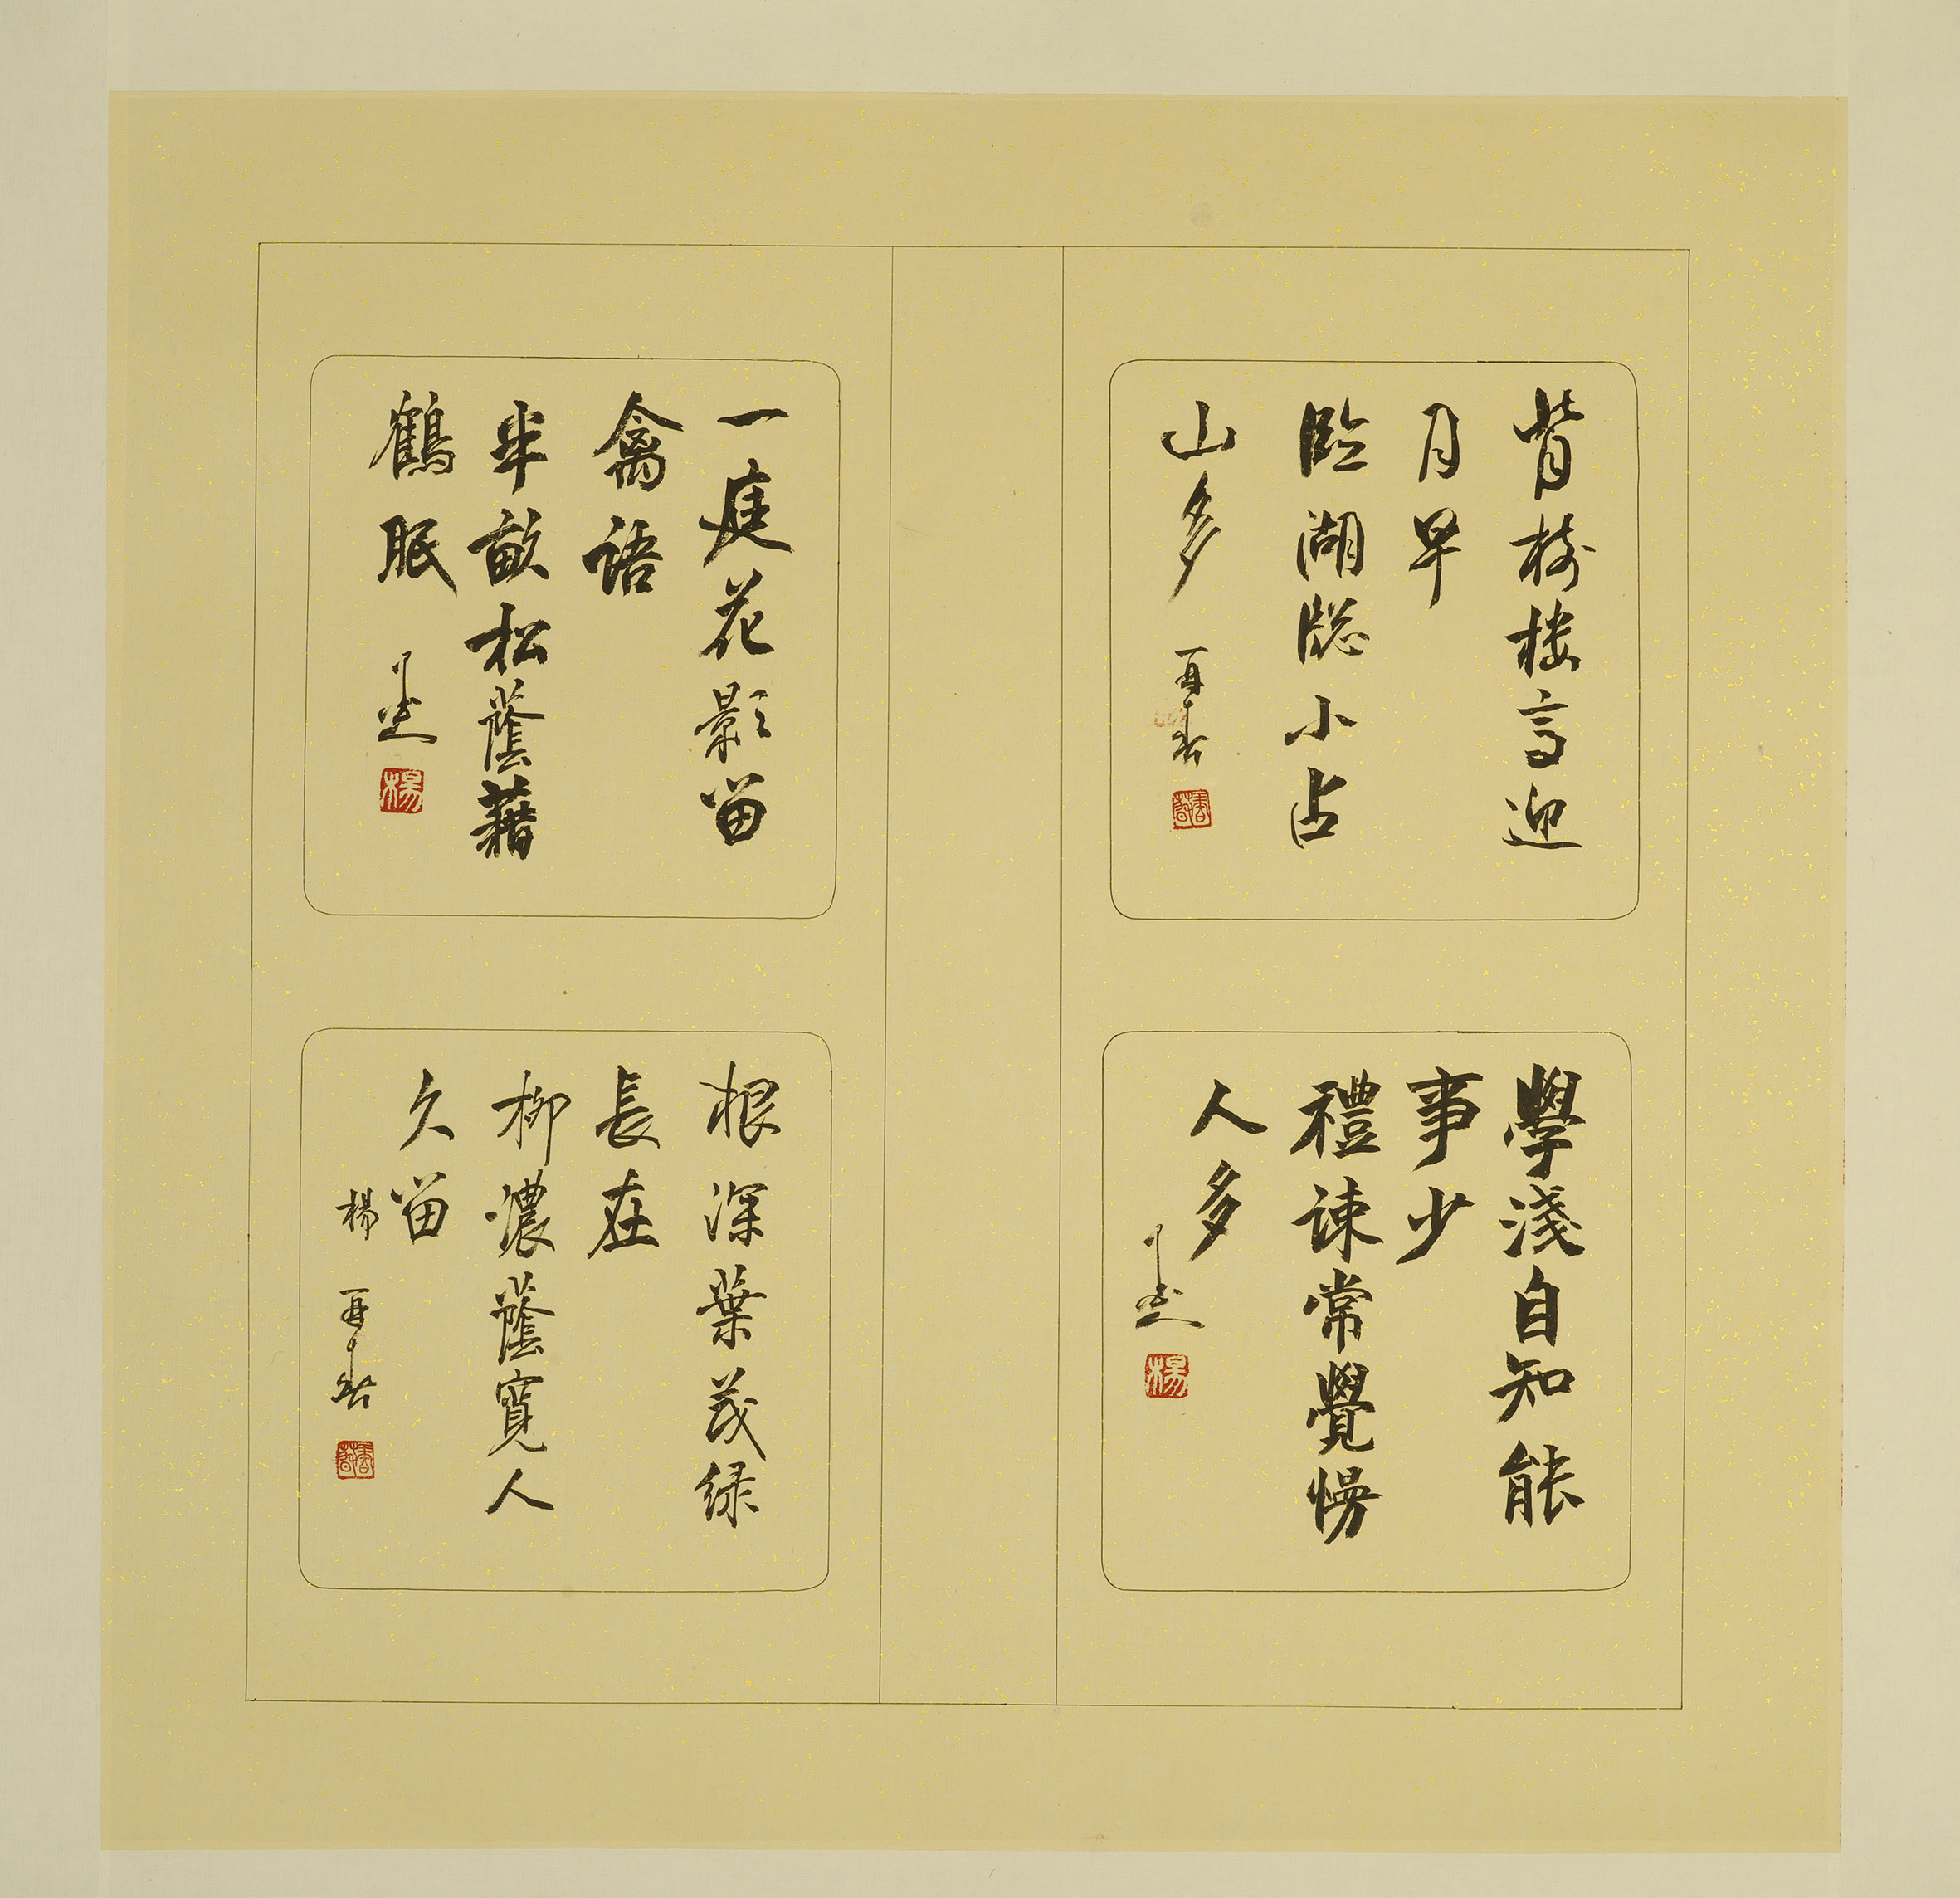 背樹楼高迎
月早
臨湖牕小占
山多
再春
學淺自知能
事少
禮疎常覺慢
人多
楊
一庭花影留
禽語
半畝松蔭藉
鶴眠
楊
根深葉茂緑
長在
柳濃蔭寬人
久留
楊再春